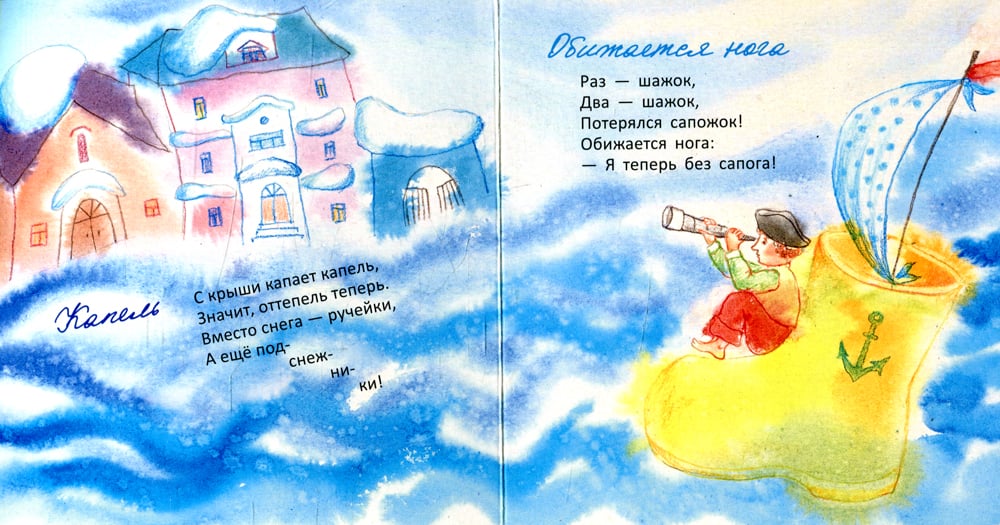 Капель
С крыши капает капель,
Значит, оттепель теперь.
Вместо снега — ручейки,
А ещё под-
снеж-
ни-
ки!
Обижается нога
Раз — шажок,
Два — шажок,
Потерялся сапожок!
Обижается нога:
— Я теперь без сапога!